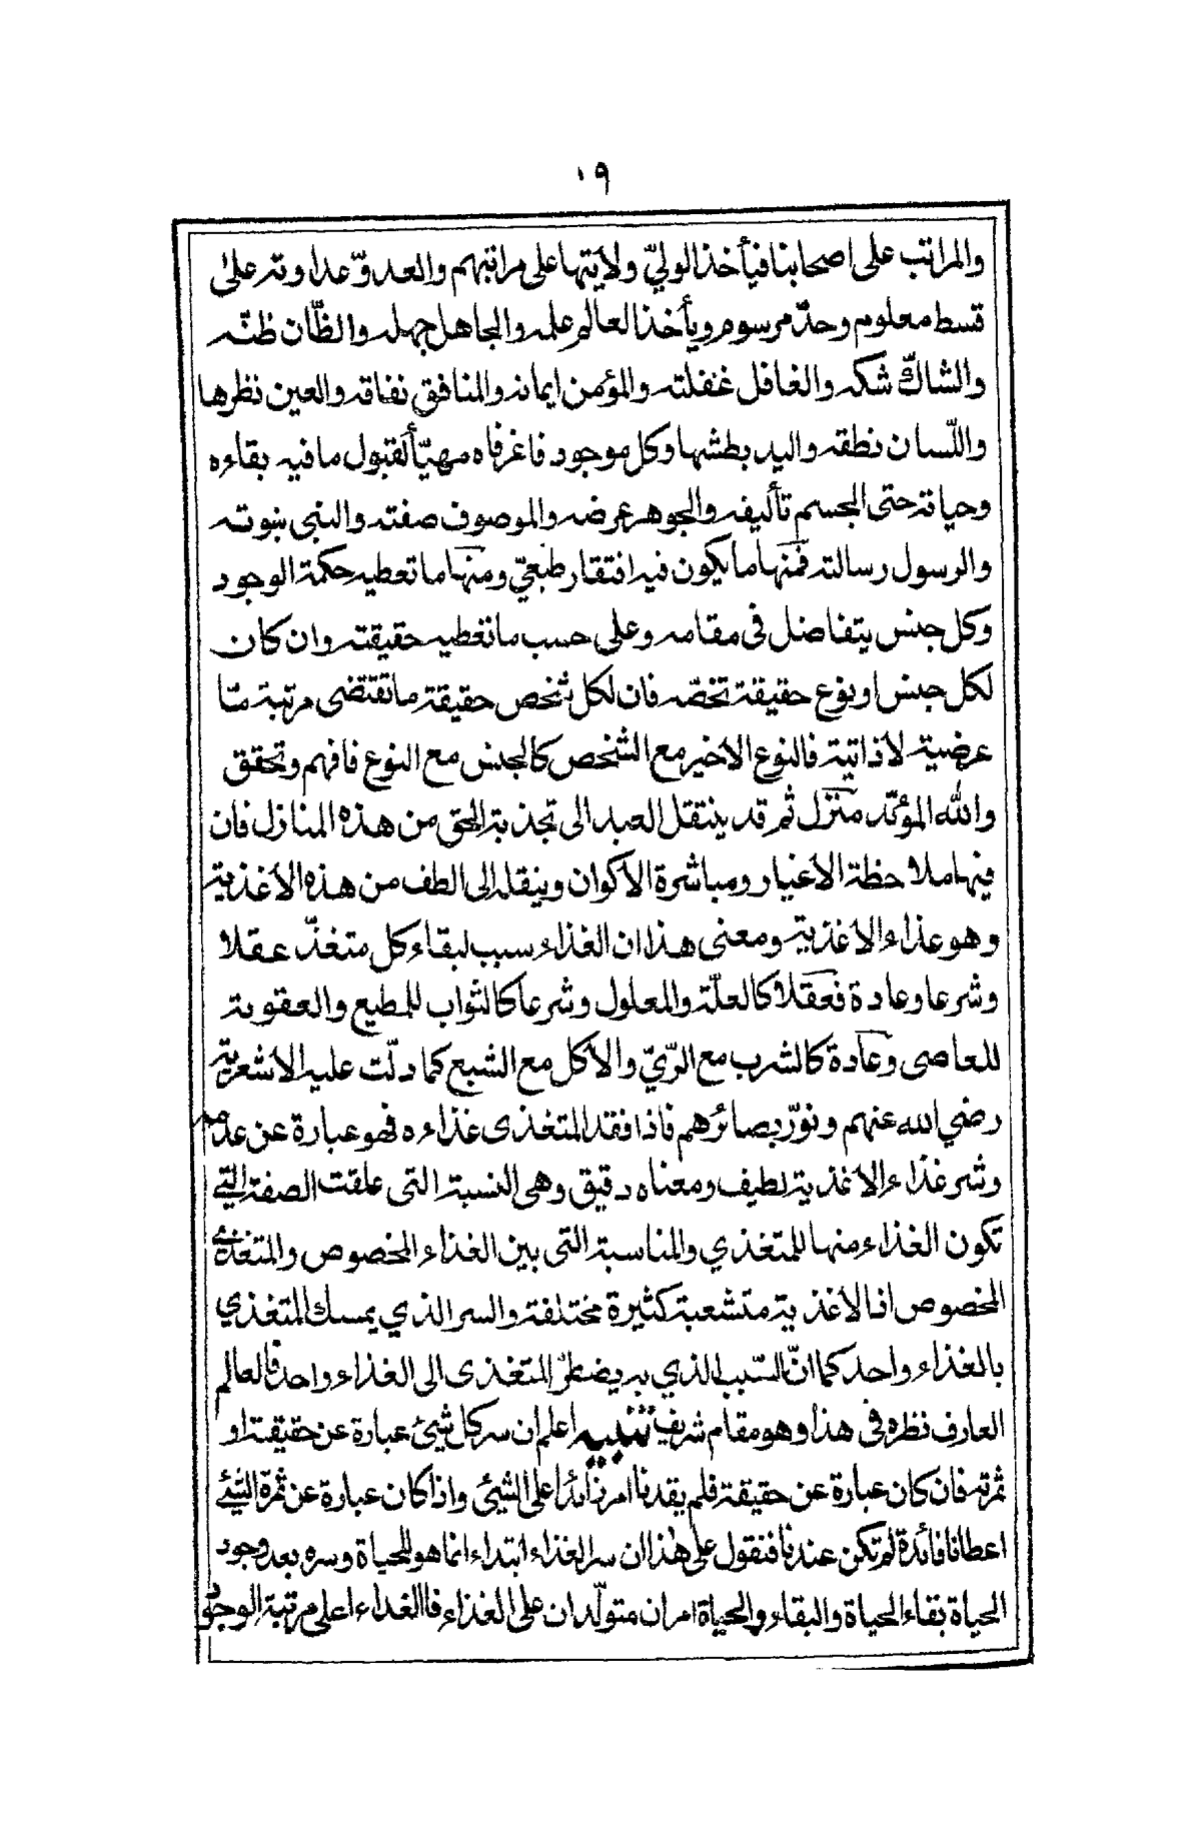 ١٩
والمراتب على اصحابنا فيأخذ الوليّ ولايتها على مراتبهم والعدوّ عداوته على
قسط معلوم وحدّ مرسوم ويأخذ العالم علمه والجاهل جهله والظّان ظنّه
والشاكّ شكه والغافل غفلته والمؤمن ايمانه والمنافق نفاقه والعين نظرها
واللّسان نطقه واليد بطشها وكل موجود فاغرفاه مهيّأ لقبول ما فيه بقاءه
وحياته حتى الجسم تأليفه والجوهر عرضه والموصوف صفته والنبى بنبوته
والرسول رسالته فمنها ما يكون فيه افتقار طبعيّ ومنها ما تعطيه حكمة الوجود
وكل جنس يتفاضل فى مقامه وعلى حسب ما تعطيه حقيقته وان كان
لكل جنس او نوع حقيقة تخصّه فان لكل شخص حقيقة ما تقتضى مرتبة مّا
عرضية لا ذاتية فالنوع الاخير مع الشخص كالجنس مع النوع فافهم وتحقق
والله المؤيّد منزل ثم قد ينتقل العبد الى تجذبة الحق من هذه المنازل فان
فيها ملاحظة الأغيار ومباشرة الأكوان وينقله الى الطف من هذه الأغذية
وهو غذاء الاغذية ومعنى هذا ان الغذاء سبب لبقاء كل متغذّ عقلا
وشرعا وعادة فعقلا كالعلّة والمعلول وشرعا كالثواب للمطيع والعقوبة
للعاصى وعادة كالشرب مع الرّيّ والأكل مع الشبع كما دلّت عليه الأشعرية
رضي الله عنهم ونوّر بصائرهم فاذا فقد المتغذى غذاءه فهو عبارة عن عدمه
وسر غذاء الاغذية لطيف ومعناه دقيق وهى النسبة التى علقت الصفة التي
تكون الغذاء منها للمتغذي والمناسبة التى بين الغذاء المخصوص والمتغذي
المخصوص فالأغذية متشعبة كثيرة مختلفة والسر الذي يمسك المتغذي
بالغذاء واحد كما انّ السّبب الذي به يضطرّ المتغذى الى الغذاء واحد فالعالم
العارف نظره فى هذا وهو مقام شريف تنبيه اعلم ان سر كل شيئ عبارة عن حقيقته او
ثمرته فان كان عبارة عن حقيقة فلم يفدنا امر زائدا على الشيئ واذا كان عبارة عن ثمرة الشيئ
اعطانا فائدة لم تكن عندنا فنقول على هذا ان سر الغذاء ابتداء انما هو للحياة وسره بعد وجود
الحياة بقاء الحياة والبقاء والحياة امران متولّدان على الغذاء فالغذاء اعلى مرتبة الوجود